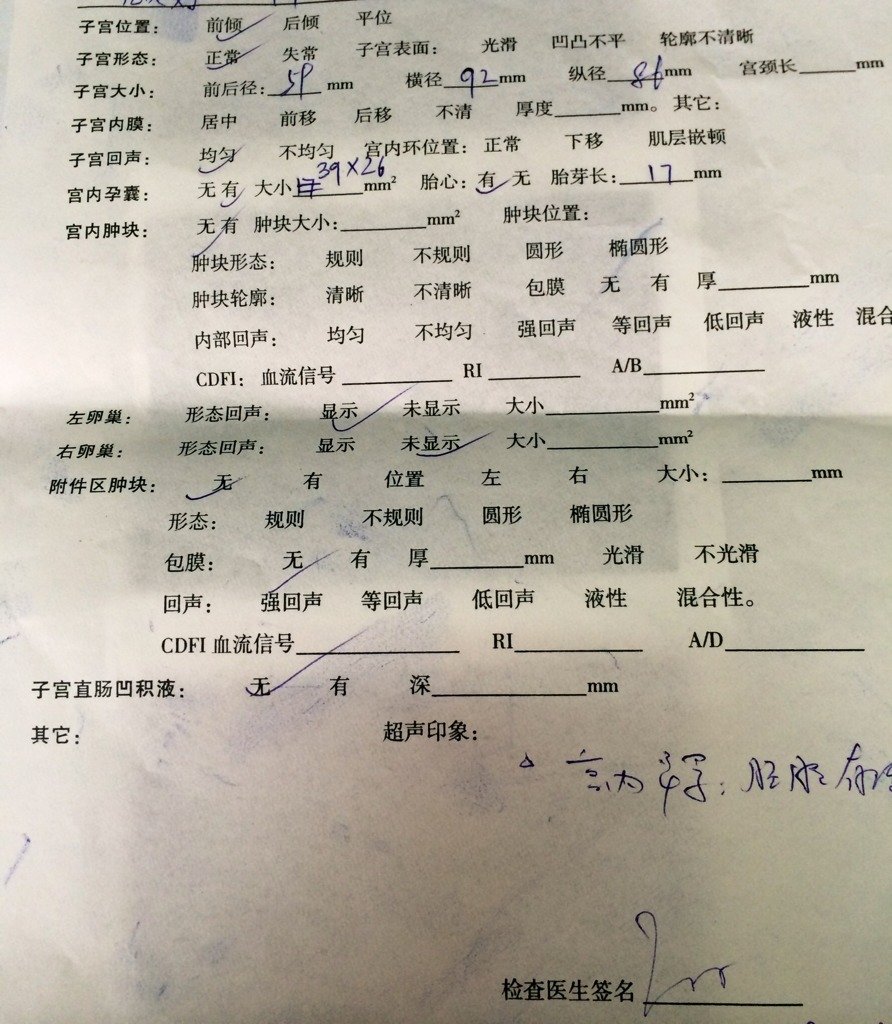 子宫位置: 前倾 后倾 平位
子宫形态: 正常 失常 子宫表面: 光滑 凹凸不平 轮廓不清晰
子宫大小: 前后径:59 mm 横径92mm 纵径86mm 宫颈长____mm
子宫内膜: 居中 前移 后移 不清 厚度____mm。其它:
子宫回声: 均匀 不均匀 宫内环位置: 正常 下移 肌层嵌顿
宫内孕囊: 无 有 大小 39×26 mm² 胎心: 有 无 胎芽长: 17 mm
宫内肿块: 无 有 肿块大小:____mm² 肿块位置:
肿块形态: 规则 不规则 圆形 椭圆形
肿块轮廓: 清晰 不清晰 包膜 无 有 厚____mm
内部回声: 均匀 不均匀 强回声 等回声 低回声 液性 混合
CDFI: 血流信号____ RI____ A/B____
左卵巢: 形态回声: 显示 未显示 大小____mm²
右卵巢: 形态回声: 显示 未显示 大小____mm²
附件区肿块: 无 有 位置 左 右 大小:____mm
形态: 规则 不规则 圆形 椭圆形
包膜: 无 有 厚____mm 光滑 不光滑
回声: 强回声 等回声 低回声 液性 混合性。
CDFI 血流信号____ RI____ A/D____
子宫直肠凹积液: 无 有 深____mm
其它: 超声印象:
宫内孕: 胚胎存
检查医生签名